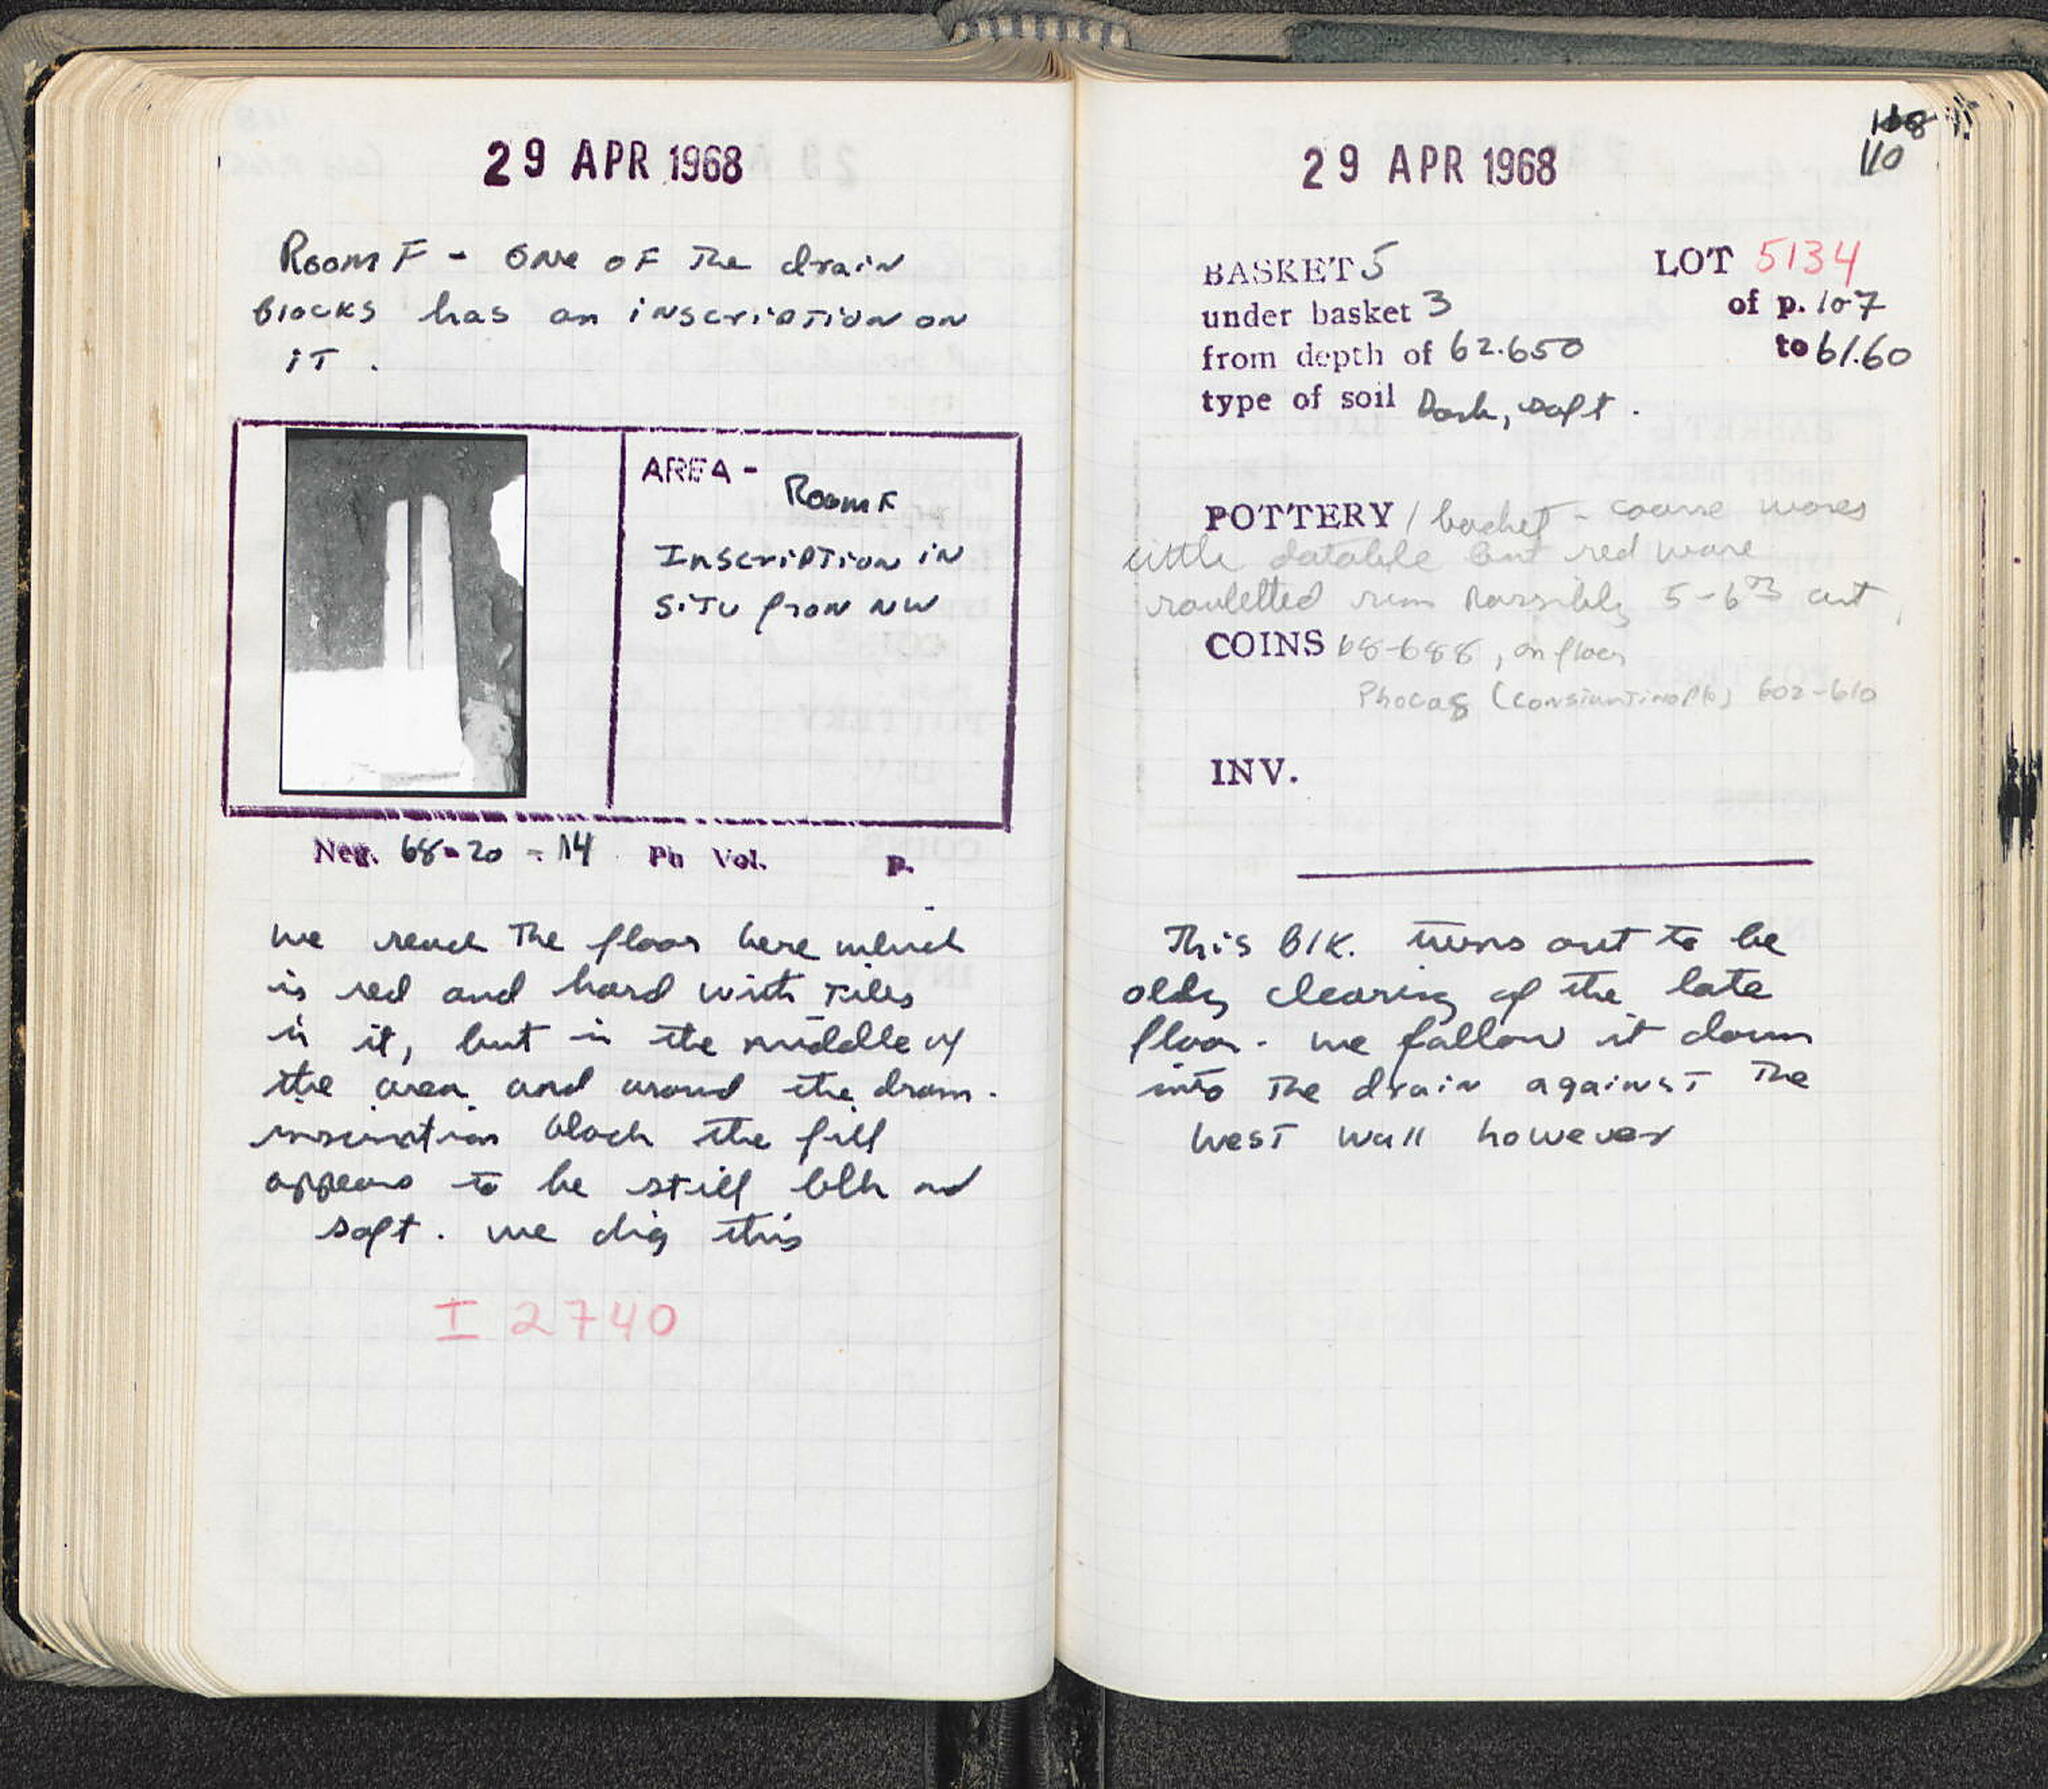 29 APR 1968
Room F - one of the drain
Blocks has an inscription on
it.
AREA - Room F
Inscription in
situ from NW
Neg. 68-20-14 Ph Vol. p.
we reach the floor here which
is red and hard with tiles
in it, but in the middle of
the area and around the drain-
inscription block the fill
appears to be still blk and
soft. we dig this
I 2740
108
110
29 APR 1968
BASKET 5 LOT 5134
under basket 3 of p. 107
from depth of 62.650 to 61.60
type of soil Dark, soft.
POTTERY 1 basket - coarse wares
little datable but red ware
rouletted rim possibly 5-6th cent.
COINS 68-688, on floor
Phocas (Constantinople) 602-610
INV.
This Blk. turns out to be
only clearing of the late
floor. we follow it down
into the drain against the
west wall however